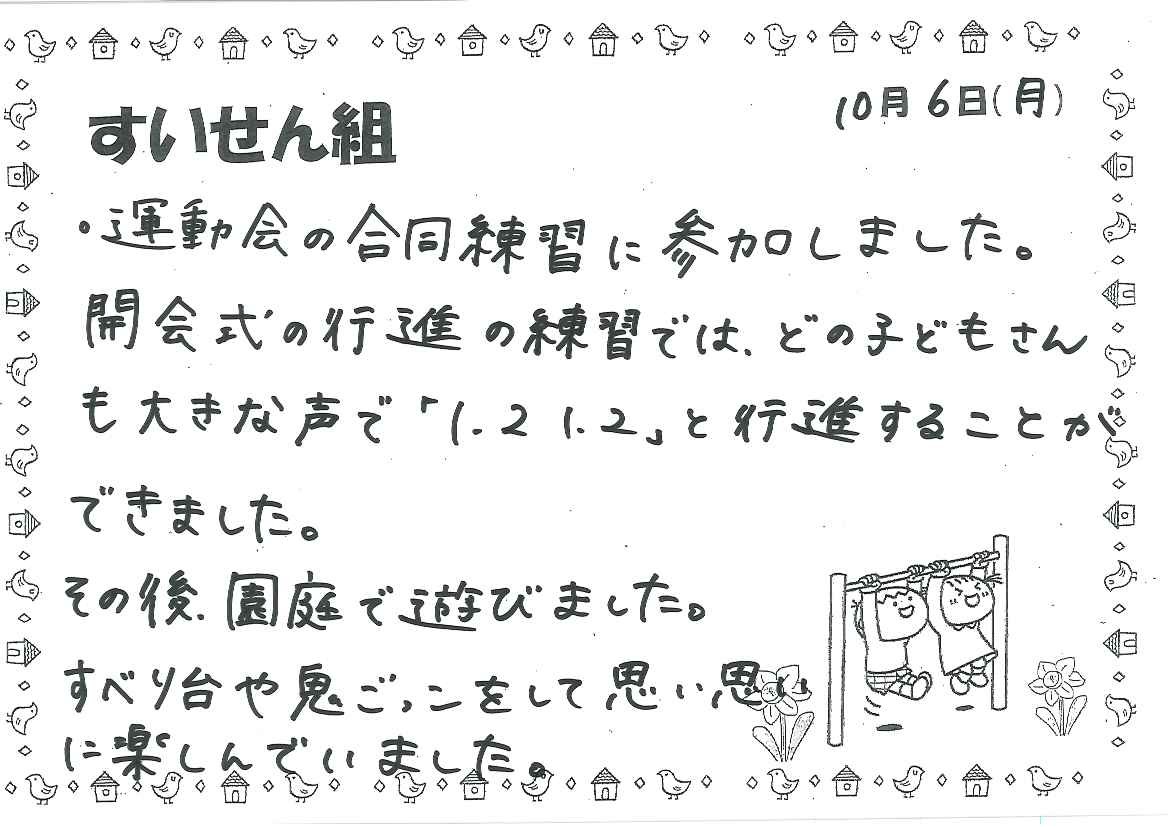 10月6日(月)
すいせん組
・運動会の合同練習に参加しました。
開会式の行進の練習では、どの子どもさん
も大きな声で「1.2 1.2」と行進することが
できました。
その後、園庭で遊びました。
すべり台や鬼ごっこをして思い思い
に楽しんでいました。